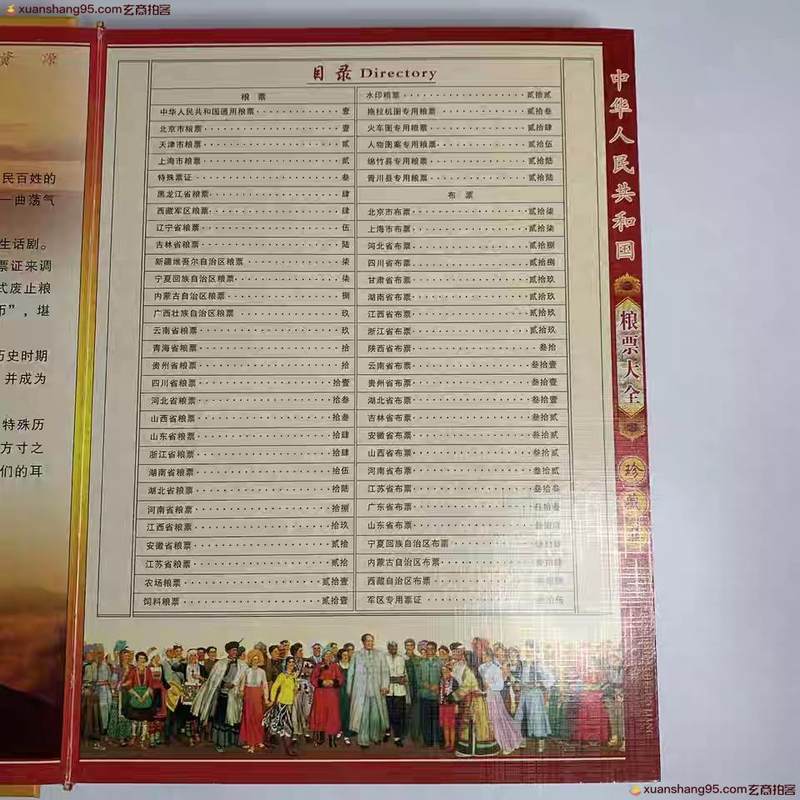 xuanshang95.com玄商拍客
资 源
民百姓的
一曲荡气
生话剧。
票证来调
式废止粮
币”，堪
历史时期
并成为
特殊历
方寸之
们的耳
目录 Directory
粮 票
中华人民共和国通用粮票 壹
北京市粮票 壹
天津市粮票 贰
上海市粮票 贰
特殊票证 叁
黑龙江省粮票 肆
西藏军区粮票 肆
辽宁省粮票 伍
吉林省粮票 陆
新疆维吾尔自治区粮票 柒
宁夏回族自治区粮票 柒
内蒙古自治区粮票 捌
广西壮族自治区粮票 玖
云南省粮票 玖
青海省粮票 拾
贵州省粮票 拾
四川省粮票 拾壹
河北省粮票 拾叁
山西省粮票 拾叁
山东省粮票 拾肆
浙江省粮票 拾肆
湖南省粮票 拾伍
湖北省粮票 拾陆
河南省粮票 拾捌
江西省粮票 拾玖
安徽省粮票 贰拾
江苏省粮票 贰拾
农场粮票 贰拾壹
饲料粮票 贰拾壹
水印粮票 贰拾贰
拖拉机图专用粮票 贰拾叁
火车图专用粮票 贰拾肆
人物图案专用粮票 贰拾伍
绵竹县专用粮票 贰拾陆
青川县专用粮票 贰拾陆
布 票
北京市布票 贰拾柒
上海市布票 贰拾柒
河北省布票 贰拾捌
四川省布票 贰拾捌
甘肃省布票 贰拾玖
湖南省布票 贰拾玖
江西省布票 贰拾玖
浙江省布票 贰拾玖
陕西省布票 叁拾
云南省布票 叁拾壹
贵州省布票 叁拾壹
湖北省布票 叁拾壹
吉林省布票 叁拾贰
安徽省布票 叁拾贰
山西省布票 叁拾贰
河南省布票 叁拾贰
江苏省布票 叁拾叁
广东省布票 叁拾叁
山东省布票
宁夏回族自治区布票
内蒙古自治区布票
西藏自治区布票
军区专用票证
中华人民共和国
粮票大全
珍
xuanshang95.com玄商拍客